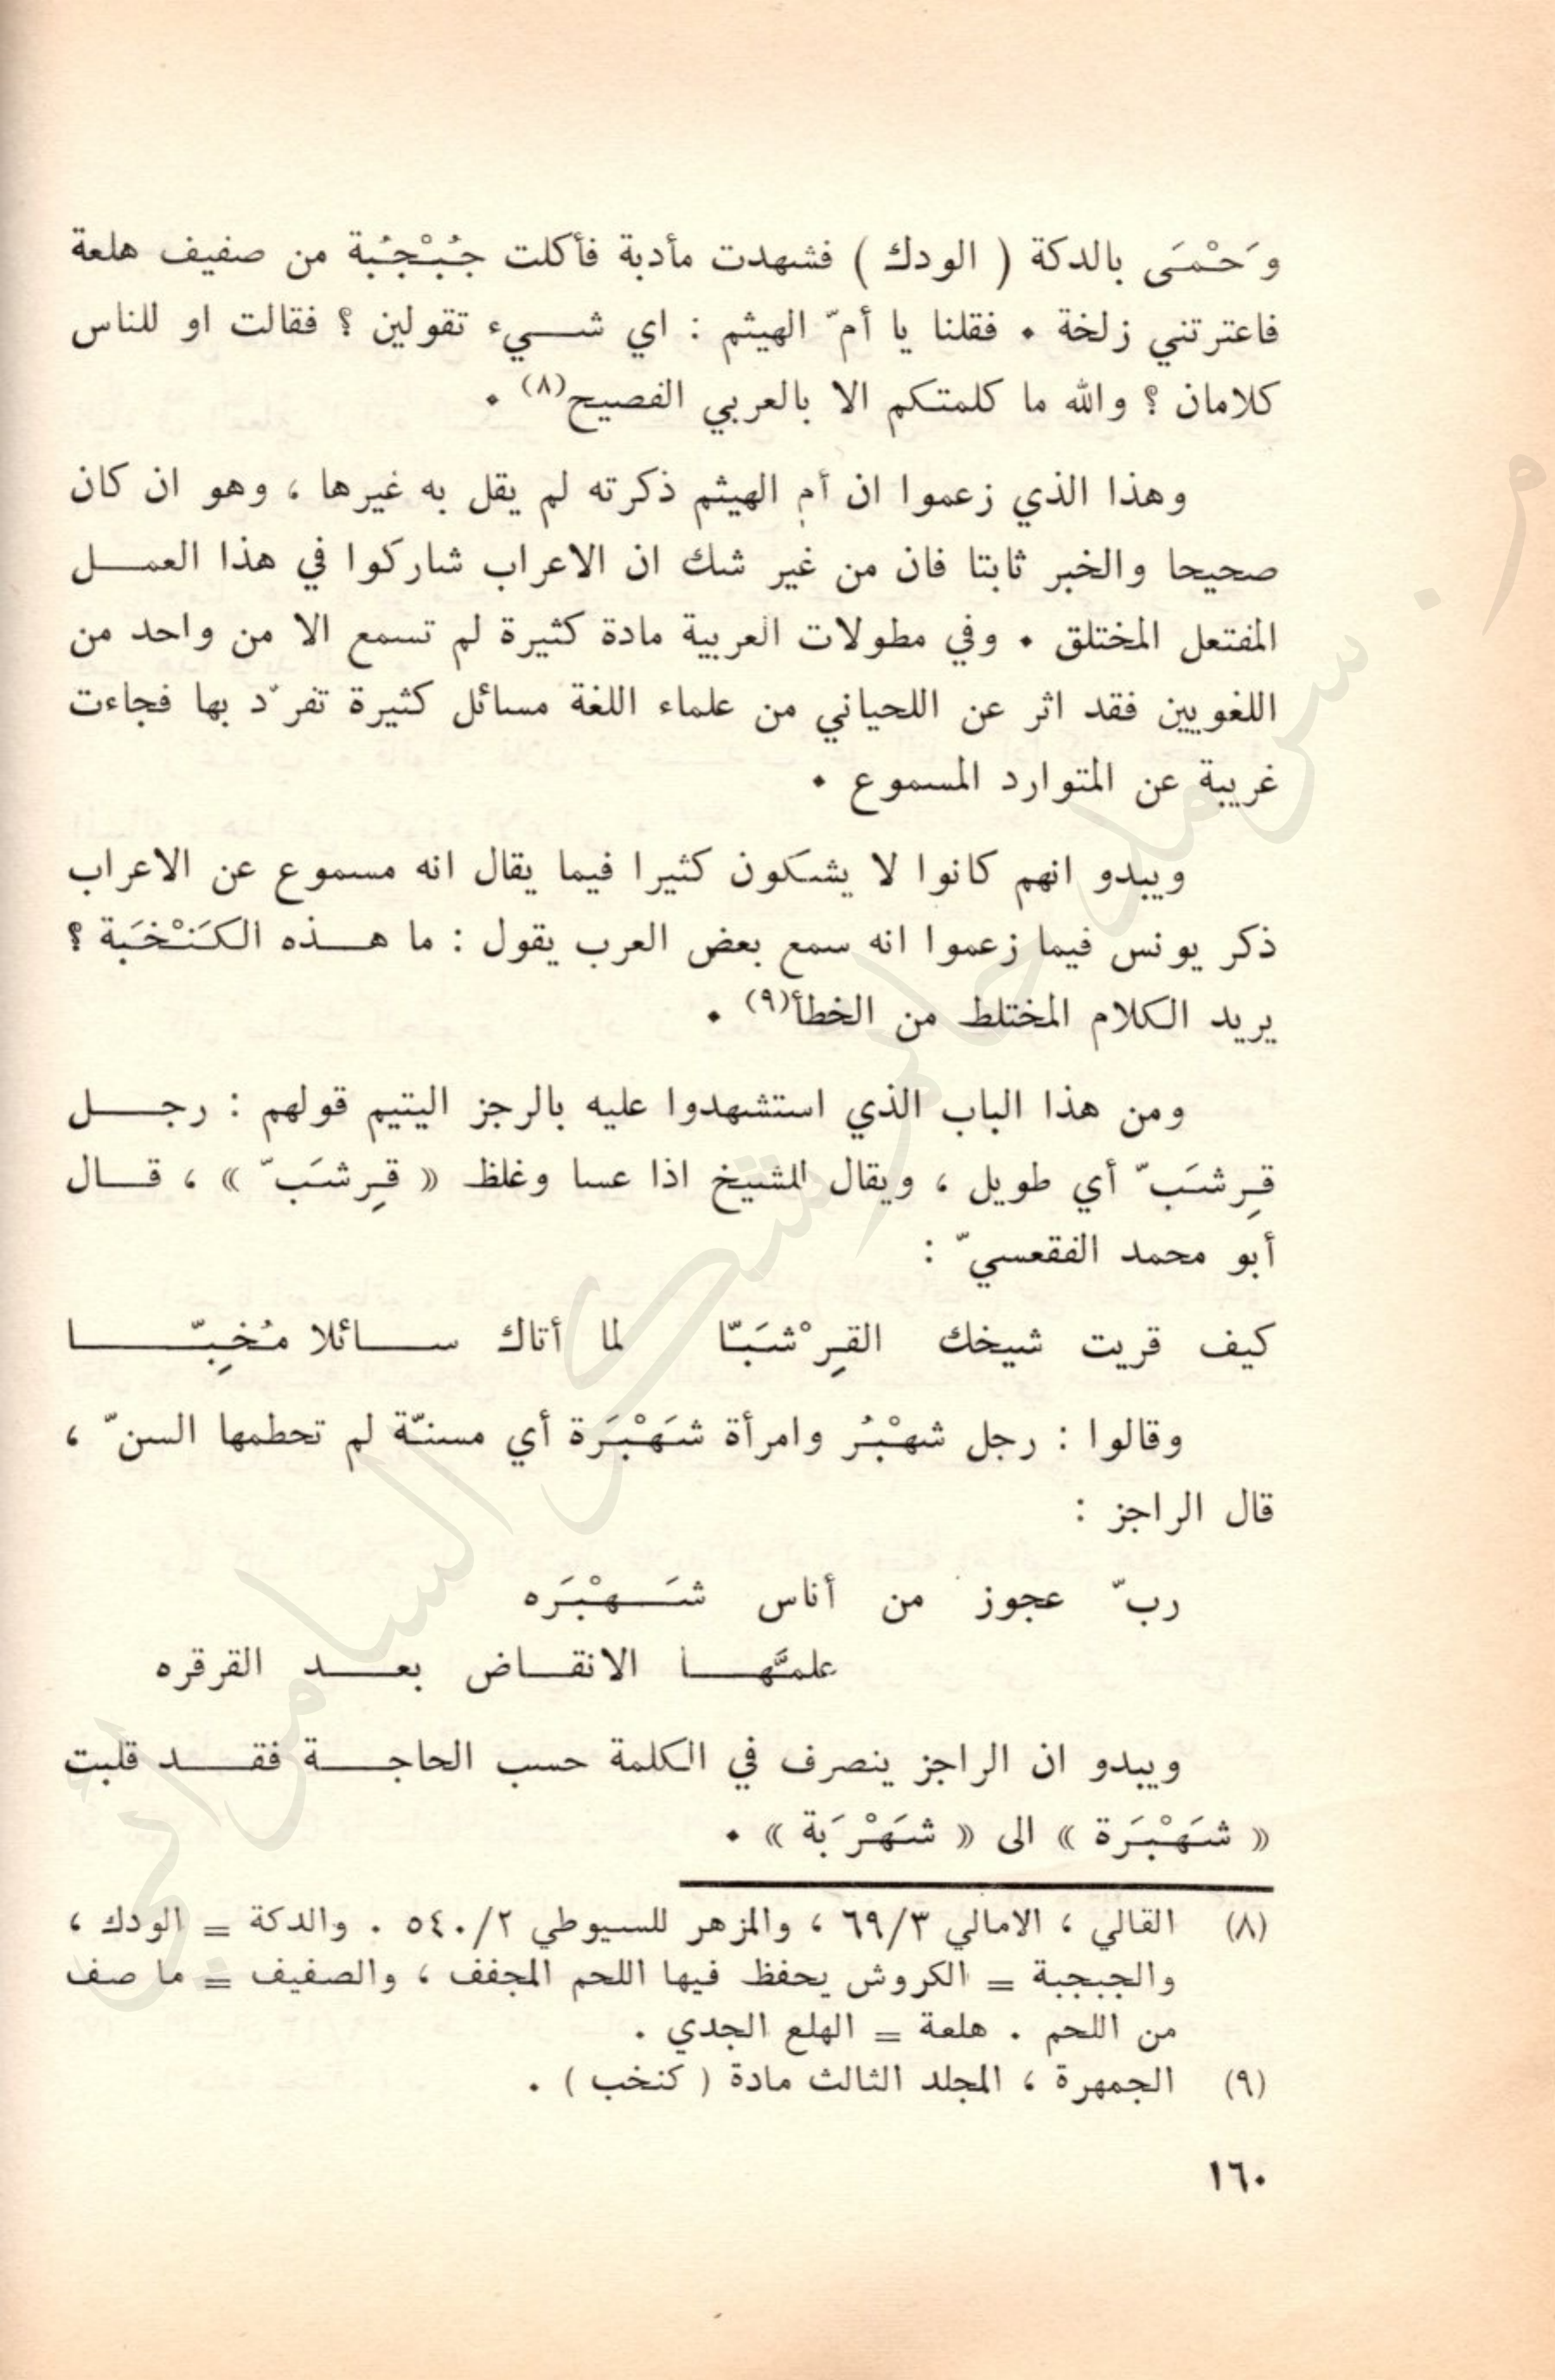 وَحْمَى بالدكة ( الودك ) فشهدت مأدبة فأكلت جُبْجُبة من صفيف هلعة
فاعترتني زلخة . فقلنا يا أمّ الهيثم : اي شيء تقولين ؟ فقالت او للناس
كلامان ؟ والله ما كلمتكم الا بالعربي الفصيح(٨) .
وهذا الذي زعموا ان أم الهيثم ذكرته لم يقل به غيرها ، وهو ان كان
صحيحا والخبر ثابتا فان من غير شك ان الاعراب شاركوا في هذا العمل
المفتعل المختلق . وفي مطولات العربية مادة كثيرة لم تسمع الا من واحد من
اللغويين فقد اثر عن اللحياني من علماء اللغة مسائل كثيرة تفرّد بها فجاءت
غريبة عن المتوارد المسموع .
ويبدو انهم كانوا لا يشكون كثيرا فيما يقال انه مسموع عن الاعراب
ذكر يونس فيما زعموا انه سمع بعض العرب يقول : ما هذه الكَنْخَبة ؟
يريد الكلام المختلط من الخطأ(٩) .
ومن هذا الباب الذي استشهدوا عليه بالرجز اليتيم قولهم : رجل
قِرشَبّ أي طويل ، ويقال للشيخ اذا عسا وغلظ « قِرشَبّ » ، قال
أبو محمد الفقعسيّ :
كيف قريت شيخك القِرْشَبّا لما أتاك سائلا مُخِبّا
وقالوا : رجل شهْبُر وامرأة شَهْبَرة أي مسنّة لم تحطمها السنّ ،
قال الراجز :
ربّ عجوز من أناس شَهْبَره
علمَّها الانقاض بعد القرقره
ويبدو ان الراجز ينصرف في الكلمة حسب الحاجة فقد قلبت
« شَهْبَرة » الى « شَهْرَبة » .
(٨) القالي ، الامالي ٦٩/٣ ، والمزهر للسيوطي ٥٤٠/٢ . والدكة = الودك ،
والجبجبة = الكروش يحفظ فيها اللحم المجفف ، والصفيف = ما صف
من اللحم . هلعة = الهلع الجدي .
(٩) الجمهرة ، المجلد الثالث مادة ( كنخب ) .
١٦٠